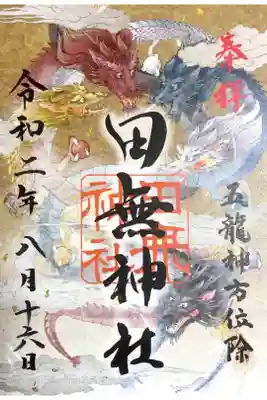 奉拝
五龍神方位除
田無神社
田無神社
令和二年八月十六日